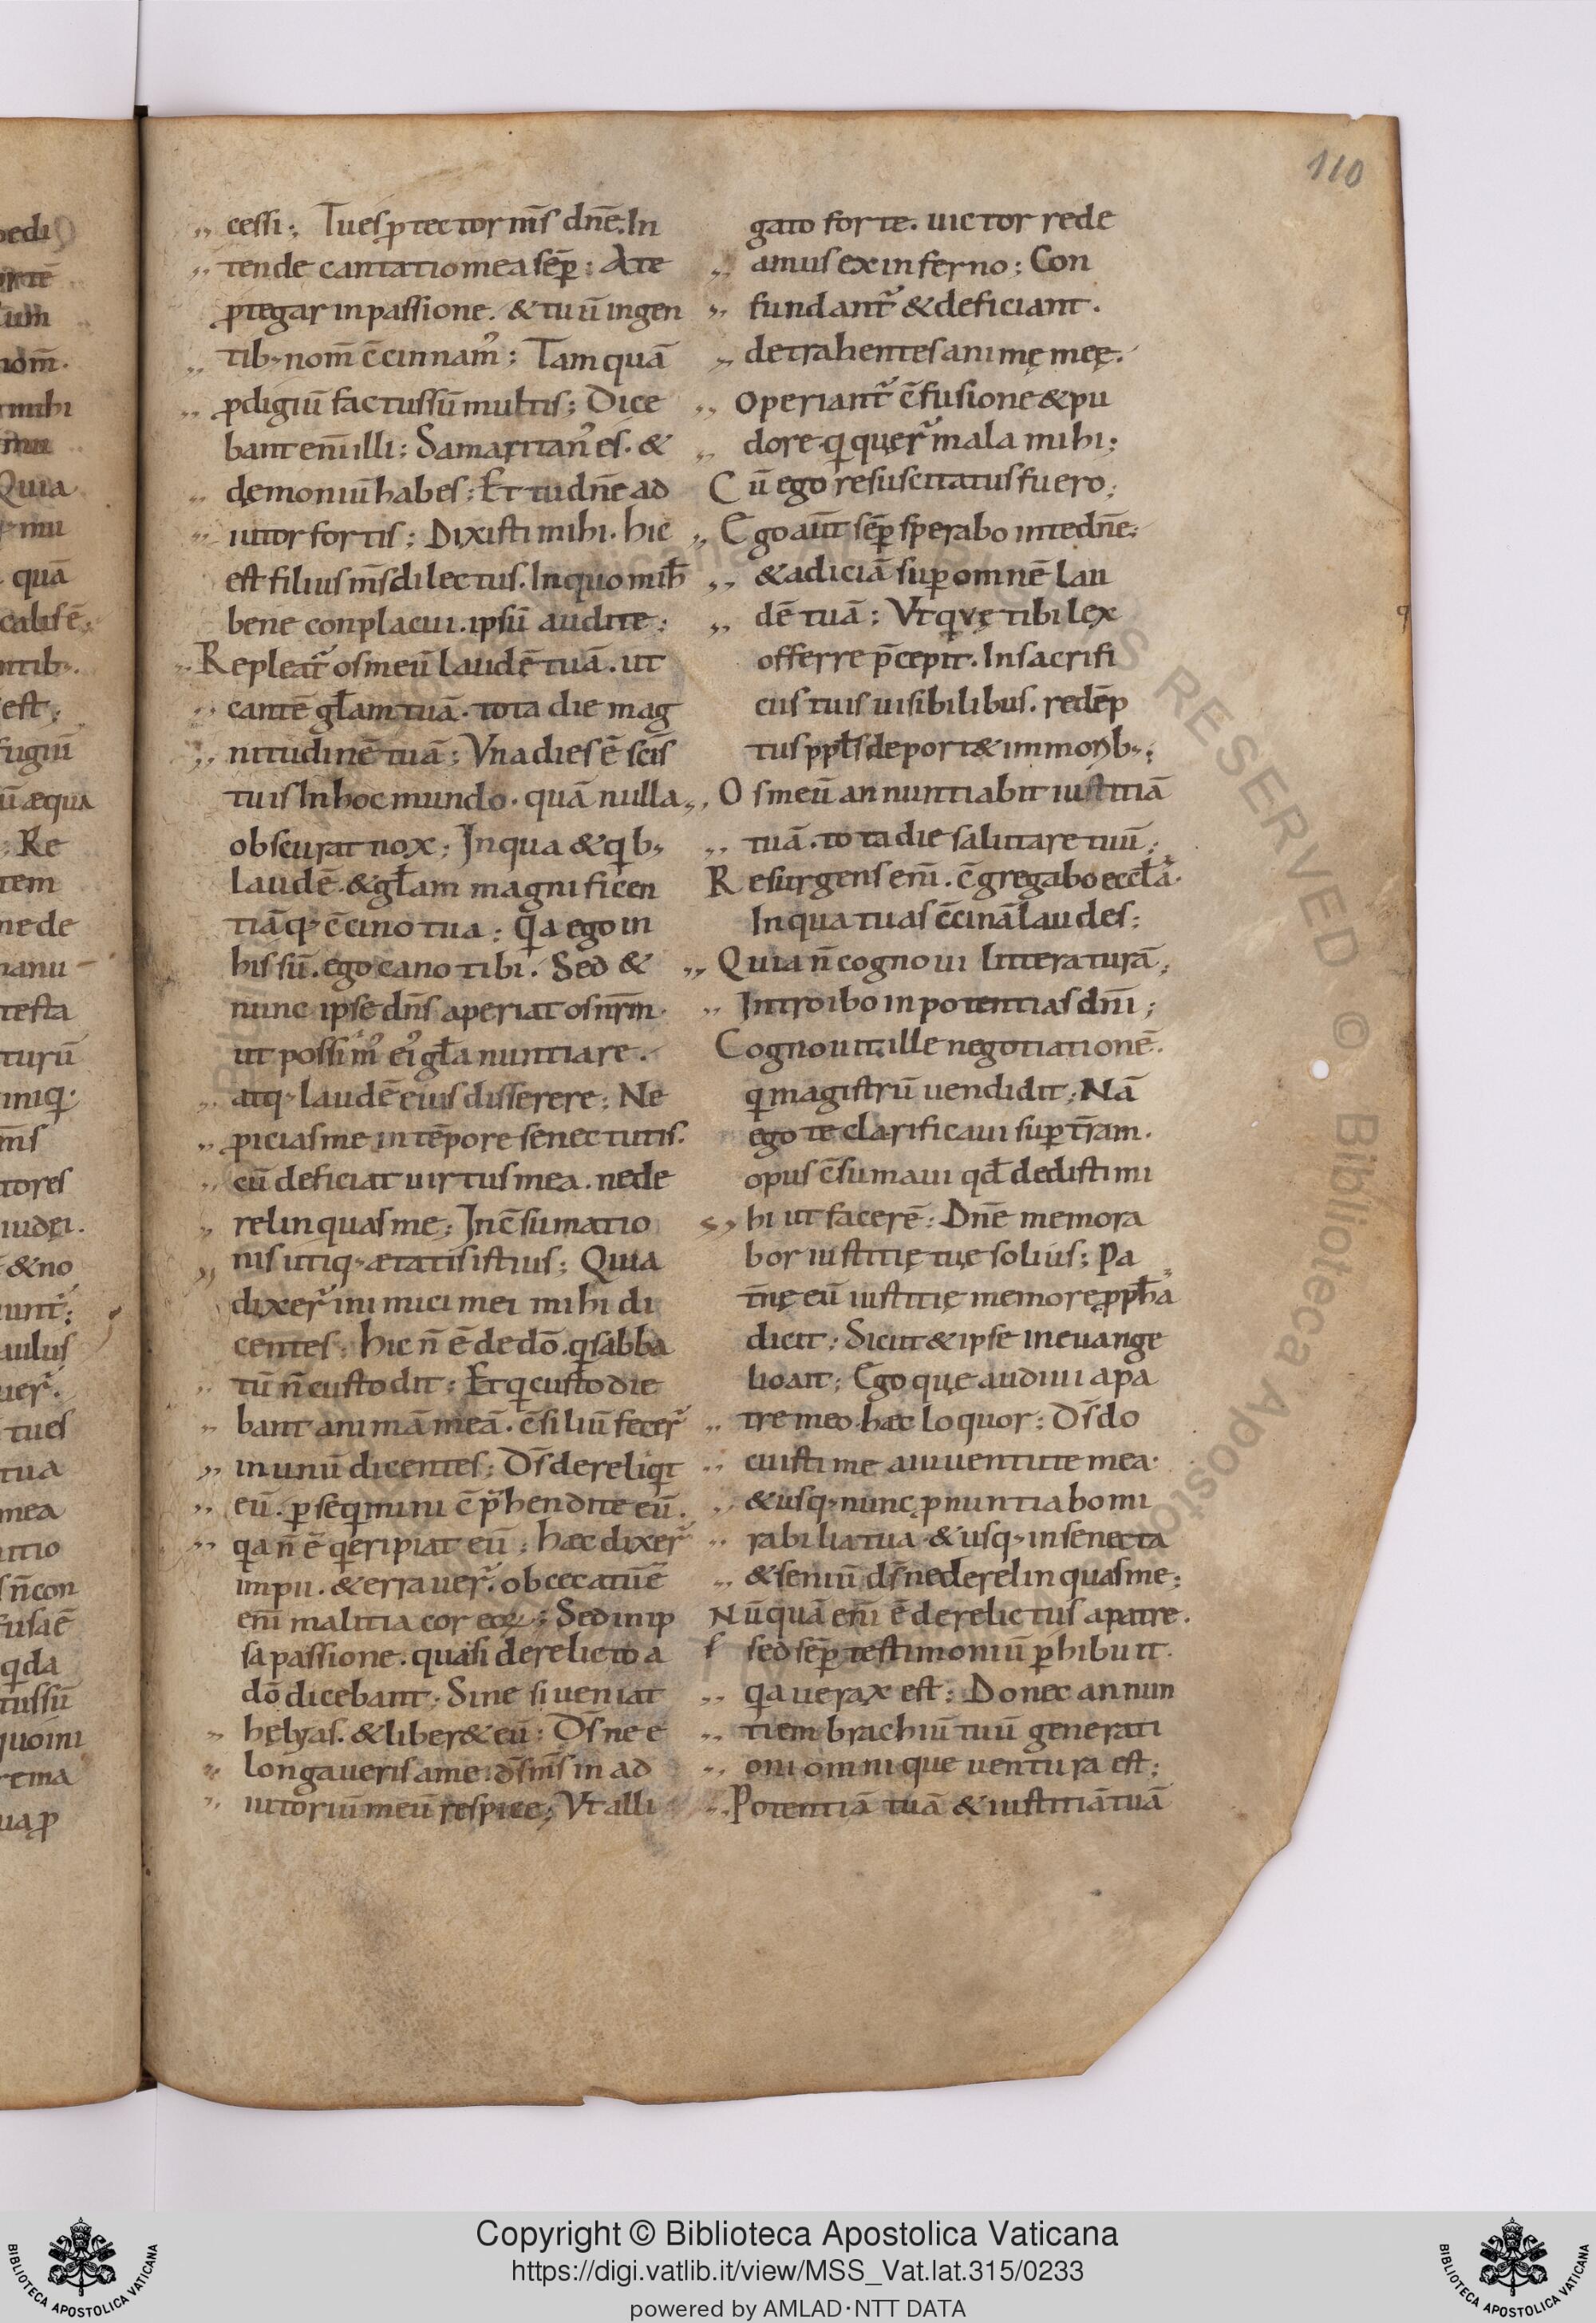 110
cessi; Tu es ꝓtector m̄s dn̄e; In
tende cantatio mea sēp̄; A te
ꝓtegar in passione. & tu ū in gen
tib; nom̄ c̄cinnam᷒; Tam quā
ꝓdigiū factus sū multis; Dice
bant eni̅ illi; Samaritan᷒ es. &
dęmoniū habes; Et tu dn̄e ad
iutor fortis; Dixisti mihi. hic
est filius m̄s dilectus. In quo mih̄
bene conplacui. ipsū audite;
Repleat᷑ os meū laudē tuā. ut
cantē gl̄am tuā. tota die mag
nitudinē tuā; Vna dies ē scīs
tuis In hoc mundo. quā nulla
obscurat nox; In qua & qͥb;
laudē. & gl̄am magnificen
tiāq; c̄cino tua; qͣa ego in
his sū. ego cano tibi. Sed &
nunc ipse dn̄s aperiat os nr̄m.
ut possim᷒ ei᷒ gl̄a nuntiare.
atq; laudē eius disserere; Ne
ꝓicias me in tēpore senectutis.
cū deficiat uirtus mea. ne de
relinquas me; In c̄sumatio
nis utiq; ætatis istius; Quia
dixer᷑ inimici mei mihi di
centes; hic n̄ ē de dō. qͥ sabba
tū n̄ custodit; Et qͥ custodie
bant animā meā. c̄siliū fecer᷑
in unū dicentes; Ds̄ dereliqͥt
eū. ꝑseqͥmini c̄p̄hendite eū.
qͣa n̄ ē qͥ eripiat eū; hæc dixer᷑
impii. & errauer᷑. obcecatū ē
eni̅ malitia cor eoꝝ; Sed in ip
sa passione. quasi derelicto a
dō dicebant; Sine si ueniat
hęlyas. & liber& eū; Ds̄ ne e
longaueris a me. ds̄ m̄s in ad
iutoriū meū respice; Vt alli
gato forte. uictor rede
amus ex inferno; Con
fundant᷑ & deficiant.
detrahentes animę meę.
Operiant᷑ c̄fusione & pu
dore. qͥ quęr᷑ mala mihi;
Cū ego resuscitatus fuero;
Ego aūt sēp̄ sperabo in te dn̄e;
& adiciā suꝑ omnē lau
dē tuā; Vt qvę tibi lex
offerre p̄cepit. In sacrifi
ciis tuis uisibilibus. redēp
tus ppl̄s deport& in monb;;
Os meū annuntiabit iustitiā
tuā. tota die salutare tuū;
Resurgens eni̅. c̄gregabo eccl̄ā.
In qua tuas c̄cinā laudes;
Quia n̄ cognoui litteraturā;
Introibo in potentias dn̄i;
Cognouit ille negotiationē.
qͥ magistrū uendidit; Nā
ego te clarificaui suꝑ tr̄am.
opus c̄sumaui qd̄ dedisti mi
hi ut facerē; Dn̄e memora
bor iustitię tuę solius; Pa
t̄nę eū iustitię memorę ꝓph̄a
dicit; Sicut & ipse in euange
lio ait; Ego quę audiui a pa
tre meo hæc loquor; Ds̄ do
cuisti me a iuuentute mea.
& usq; nunc ꝓnuntiabo mi
rabilia tua. & usq; in senecta
& seniū ds̄ ne derelinquas me;
Nūquā eni̅ ē derelictus a patre.
sed sēp̄ testimoniū ꝑhibuit.
qͣa uerax est; Donec annun
tiem brachiū tuū generati
oni omni que uentura est;
Potentiā tuā & iustitiā tuā
Copyright © Biblioteca Apostolica Vaticana
https://digi.vatlib.it/view/MSS_Vat.lat.315/0233
powered by AMLAD·NTT DATA